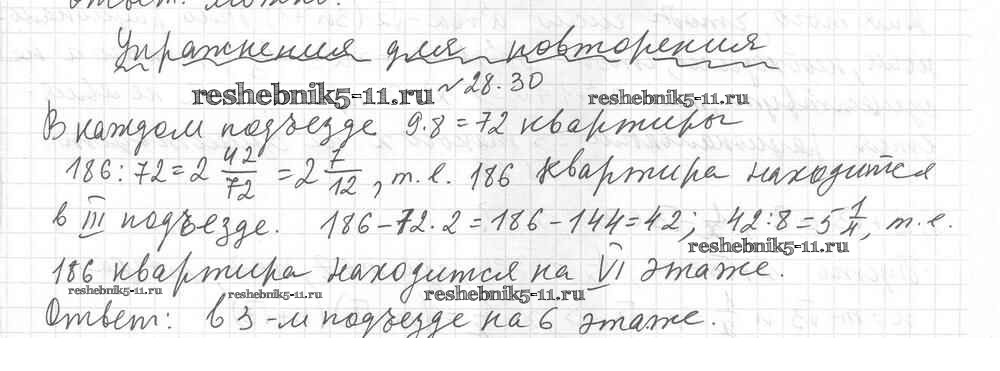 Ответ: можно.
Упражнения для повторения
reshebnik5-11.ru №28.30 reshebnik5-11.ru
В каждом подъезде 9·8=72 квартиры
186:72=2 42/72 =2 7/12, т.е. 186 квартира находится
в III подъезде. 186-72·2=186-144=42; 42:8=5 1/4, т.е.
reshebnik5-11.ru
186 квартира находится на VI этаже.
reshebnik5-11.ru reshebnik5-11.ru reshebnik5-11.ru
Ответ: в 3-м подъезде на 6 этаже.